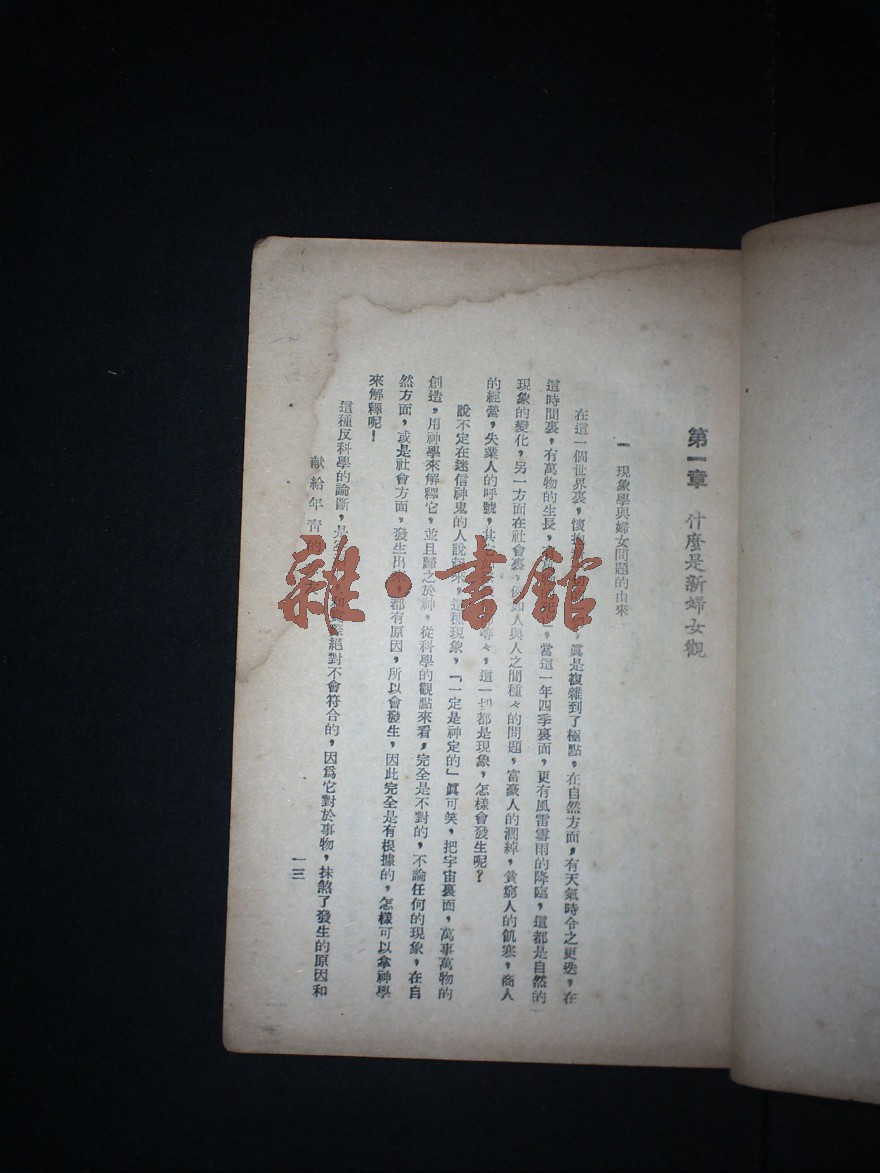 第一章 什麼是新婦女觀
一 現象學與婦女問題的由來
在這一個世界裏,懷抱 眞是複雜到了極點,在自然方面,有天氣時令之更迭,在
這時間裏,有萬物的生長, 當這一年四季裏面,更有風雷雲雨的降臨,這都是自然的
現象的變化,另一方面在社會裏,例如人與人之間種々的問題,富豪人的濶綽,貧窮人的飢寒,商人
的經營,失業人的呼號,其 等々,這一切都是現象,怎樣會發生呢?
說不定在迷信神鬼的人說起來,這種現象,「一定是神定的」眞可笑,把宇宙裏面,萬事萬物的
創造,用神學來解釋它,並且歸之於神,從科學的觀點來看,完全是不對的,不論任何的現象,在自
然方面,或是社會方面,發生出來,都有原因,所以會發生,因此完全是有根據的,怎樣可以拿神學
來解釋呢!
這種反科學的論斷,是 絕對不會符合的,因爲它對於事物,抹煞了發生的原因和
献給年青的
一三
雜·書館